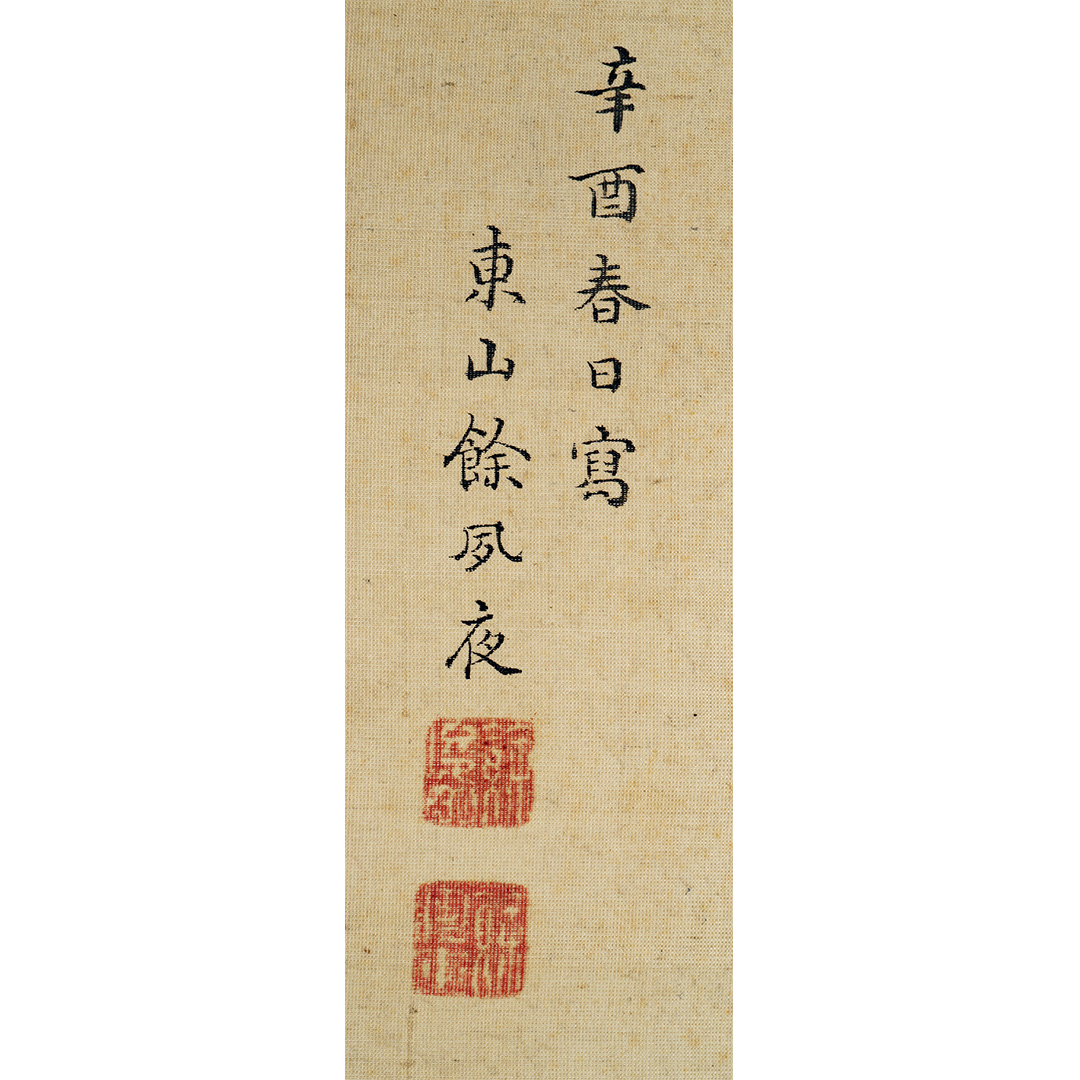 辛酉春日寫
東山餘夙夜